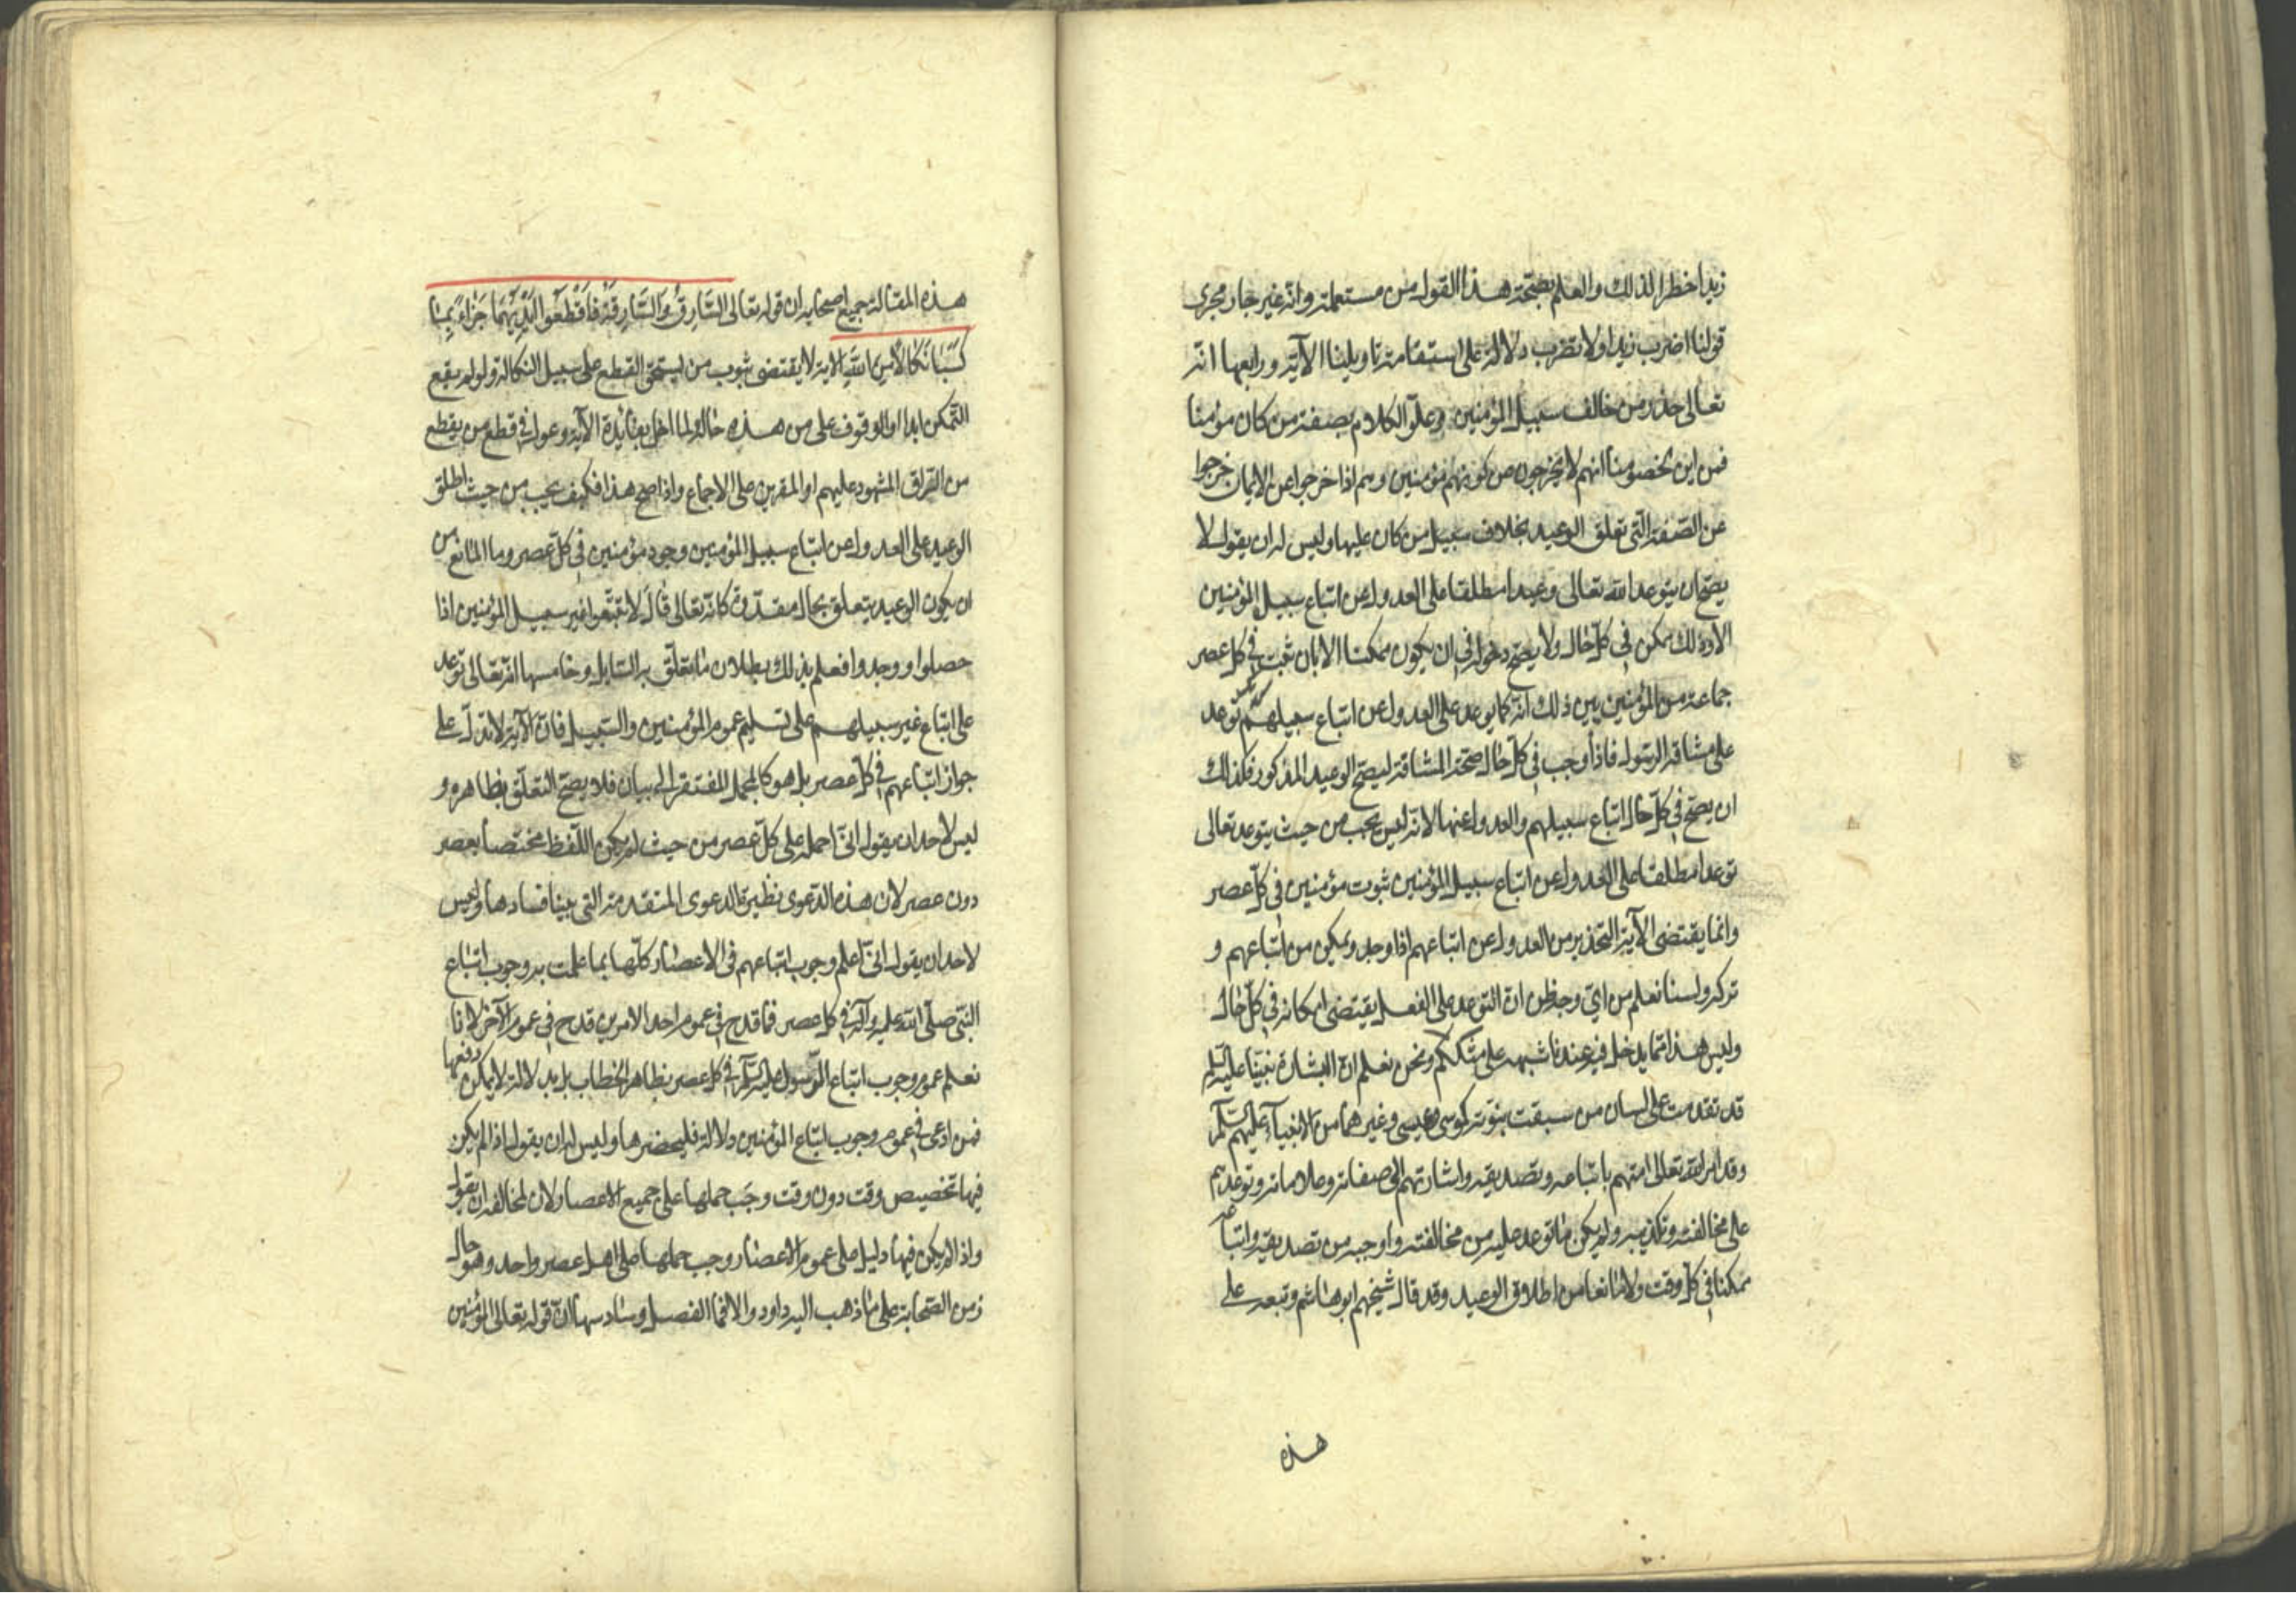 زيدا خطرا لذلك والعلم بصحة هذا القول من مستعمله وانه غير جار مجرى
قولنا اضرب زيدا ولا تضرب دلالة على استقامة تاويلنا الآية ورابعها انه
تعالى حذر من خالف سبيل المؤمنين وعلق الكلام بصفة من كان مؤمنا
فمن اين لخصومنا انهم لا يخرجون من كونهم مؤمنين وهم اذا خرجوا عن الايمان خرجوا
عن الصفة التى تعلق الوعيد بخلاف سبيل من كان عليها وليس له ان يقول لا
يصح ان يتوعد الله تعالى وعيدا مطلقا على العدول عن اتباع سبيل المؤمنين
الا وذلك ممكن فى كل حال ولا يصح دخوله فى ان يكون ممكنا الا بان ثبت فى كل عصر
جماعة من المؤمنين يبين ذلك انه كما يوعد على العدول عن اتباع سبيلهم توعد
على مشاقة الرسول فاذا وجب فى كل حال صحة المشاقة ليصح الوعيد المذكور فكذلك
ان يصح فى كل حال اتباع سبيلهم والعدول عنها لانه ليس يجب من حيث يتوعد تعالى
توعدا مطلقا على العدول عن اتباع سبيل المؤمنين ثبوت مؤمنين فى كل عصر
وانما يقتضى الآية التحذير من العدول عن اتباعهم اذا وجدوا ويمكن من اتباعهم و
تركه ولسنا نعلم من اى وجه ظن ان التوعد على الفعل يقتضى امكانه فى كل حال
وليس هذا مما يدخل فيه عندنا شبهة على متكلم ونحن نعلم ان البشارة نبينا عليه السلم
قد تقدمت على لسان من سبقت نبوته كموسى وعيسى وغيرهما من الانبيآء عليهم السلم
وقد امر الله تعالى امتهم باتباعه وتصديقه واشارتهم الى صفاته وعلاماته وتوعدهم
على مخالفته وتكذيبه ولم يكن ما توعد عليه من مخالفته واوجبه من تصديقه واتباعه
ممكنا فى كل وقت ولا مانعا من اطلاق الوعيد وقد قال شيخهم ابو هاشم وتبعه على
هذه
هذه المقالة جميع اصحابه ان قوله تعالى السَّارِقُ وَالسَّارِقَةُ فَاقْطَعُوا اَيْدِيَهُمَا جَزَاءً بِمَا
كَسَبَا نَكَالًا مِنَ اللهِ الآية لا يقتضى ثبوت من يستحق القطع على سبيل النكال ولو لم يقع
التمكن ابدا والوقوف على من هذه حاله لما اخل بفائدة الآية وعول فى قطع من يقطع
من السراق المشهود عليهم او المقرين على الاجماع واذا صح هذا فكيف يجب من حيث اطلق
الوعيد على العدول عن اتباع سبيل المؤمنين وجود مؤمنين فى كل عصر وما المانع من
ان يكون الوعيد يتعلق بحال مقدرة كانه تعالى قال لا تتبعوا غير سبيل المؤمنين اذا
حصلوا ووجدوا فعلم بذلك بطلان ما يتعلق به السايل وخامسها انه تعالى توعد
على اتباع غير سبيلهم على تسليم عموم المؤمنين والسبيل فان الآية لا تدل على
جواز اتباعهم فى كل عصر بل هو كالمجمل المفتقر الى بيان فلا يصح التعلق بظاهره و
ليس لاحد ان يقول انى احمله على كل عصر من حيث لم يكن اللفظ مختصا بعصر
دون عصر لان هذه الدعوى نظيرة الدعوى المتقدمة التى بينا فسادها وليس
لاحد ان يقول انى اعلم وجوب اتباعهم فى الاعصار كلها بما علمت به وجوب اتباع
النبى صلى الله عليه وآله فى كل عصر فما قدح فى عموم احد الامرين قدح فى عموم الآخر لانا
نعلم عموم وجوب اتباع الرسول عليه السلم فى كل عصر بظاهر الخطاب بل بدلالة لا يمكن دفعها
فمن ادعى فى عموم وجوب اتباع المؤمنين دلالة فليحضرها وليس له ان يقول اذا لم يكن
فيها تخصيص وقت دون وقت وجب حملها على جميع الاعصار لان لمخالفه ان يقول
واذا لم يكن فيها دليل على عموم الاعصار وجب حملها على اهل عصر واحد وهو حال
زمن الصحابة على ما ذهب اليه داود والا فما الفصل وسادسها ان قوله تعالى المؤمنين